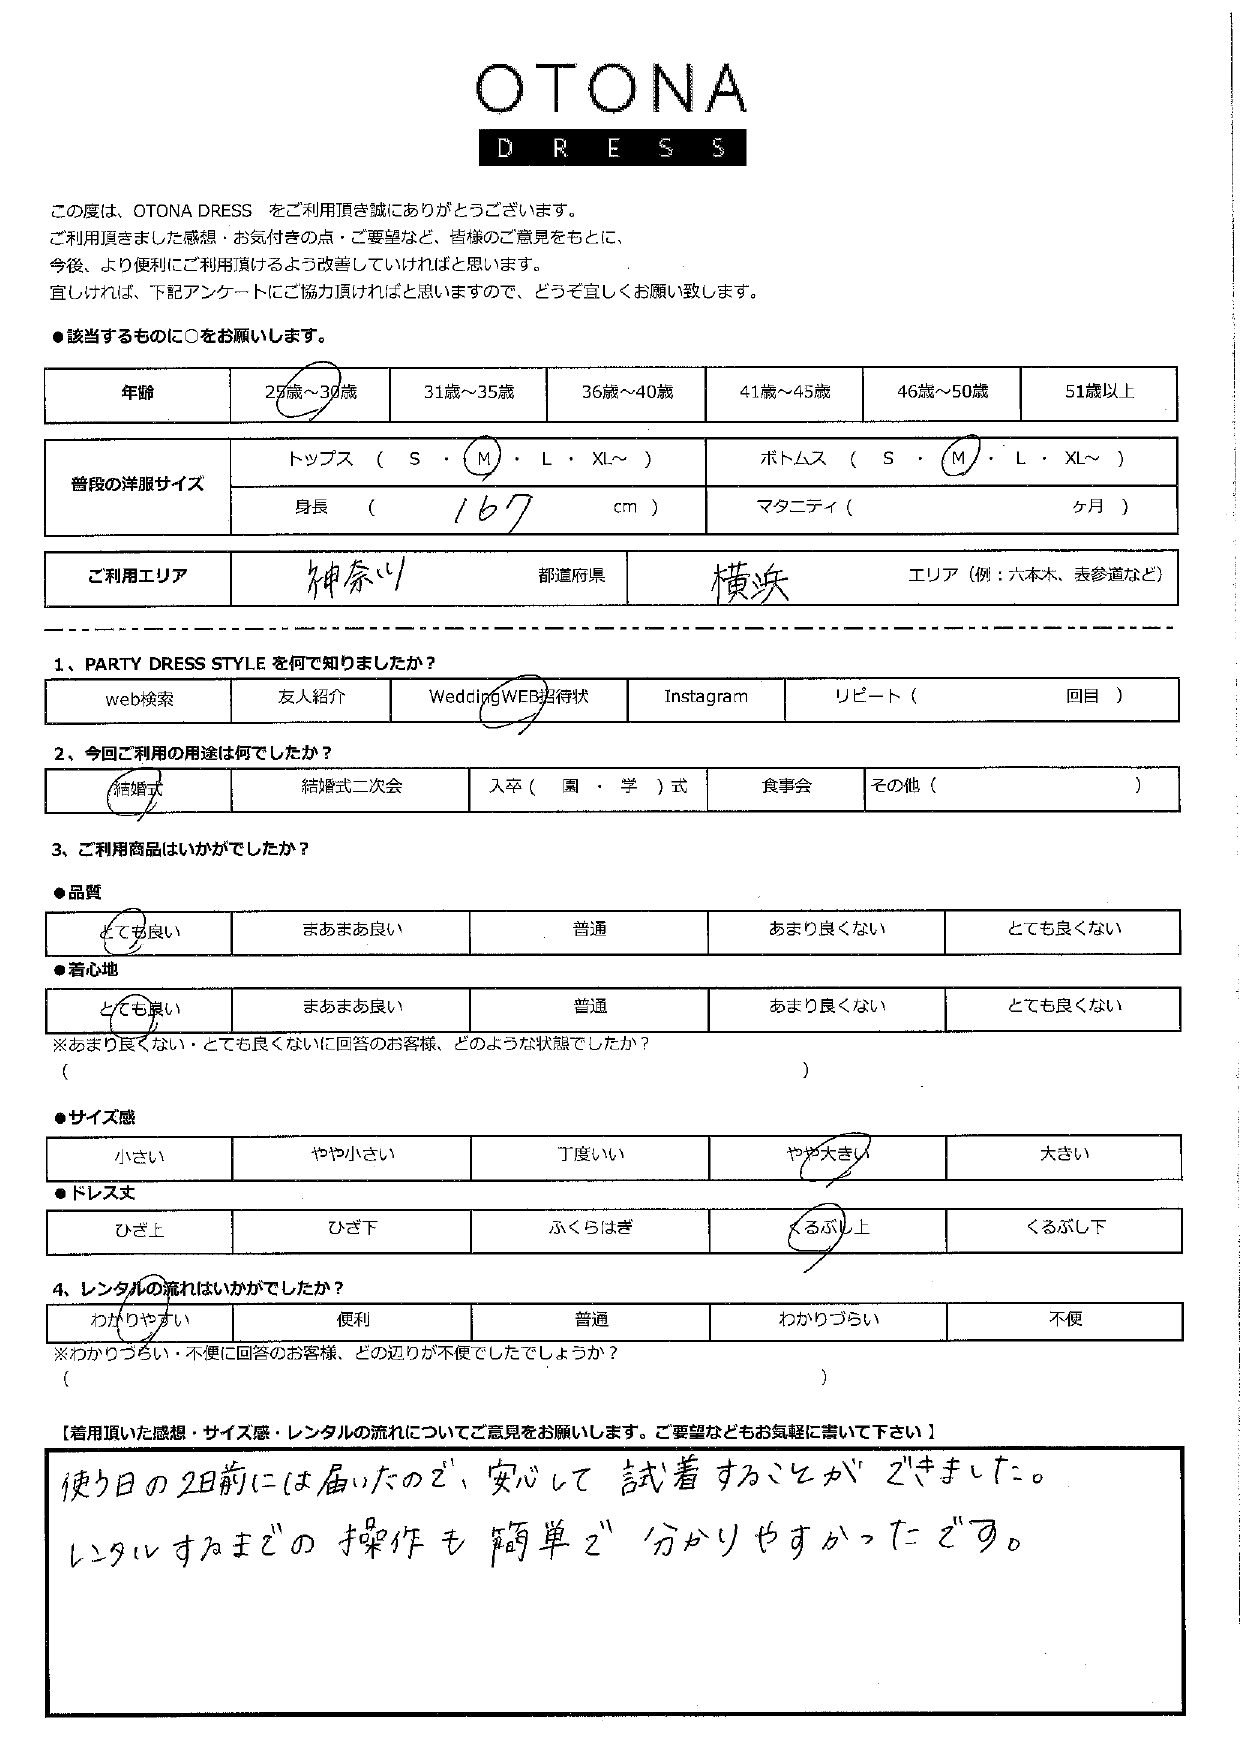 OTONA
DRESS
この度は、OTONA DRESS　をご利用頂き誠にありがとうございます。
ご利用頂きました感想・お気付きの点・ご要望など、皆様のご意見をもとに、
今後、より便利にご利用頂けるよう改善していければと思います。
宜しければ、下記アンケートにご協力頂ければと思いますので、どうぞ宜しくお願い致します。
●該当するものに○をお願いします。
年齢 25歳～30歳 31歳～35歳 36歳～40歳 41歳～45歳 46歳～50歳 51歳以上
普段の洋服サイズ
トップス （ S ・ M ・ L ・ XL～ ） ボトムス （ S ・ M ・ L ・ XL～ ）
身長 （ 167 cm ） マタニティ（ ヶ月 ）
ご利用エリア 神奈川 都道府県 横浜 エリア（例：六本木、表参道など）
1、PARTY DRESS STYLE を何で知りましたか？
web検索 友人紹介 WeddingWEB招待状 Instagram リピート（ 回目 ）
2、今回ご利用の用途は何でしたか？
結婚式 結婚式二次会 入卒（ 園 ・ 学 ）式 食事会 その他（ ）
3、ご利用商品はいかがでしたか？
●品質
とても良い まあまあ良い 普通 あまり良くない とても良くない
●着心地
とても良い まあまあ良い 普通 あまり良くない とても良くない
※あまり良くない・とても良くないに回答のお客様、どのような状態でしたか？
（ ）
●サイズ感
小さい やや小さい 丁度いい やや大きい 大きい
●ドレス丈
ひざ上 ひざ下 ふくらはぎ くるぶし上 くるぶし下
4、レンタルの流れはいかがでしたか？
わかりやすい 便利 普通 わかりづらい 不便
※わかりづらい・不便に回答のお客様、どの辺りが不便でしたでしょうか？
（ ）
【着用頂いた感想・サイズ感・レンタルの流れについてご意見をお願いします。ご要望などもお気軽に書いて下さい】
使う日の2日前には届いたので、安心して試着することができました。
レンタルするまでの操作も簡単で分かりやすかったです。